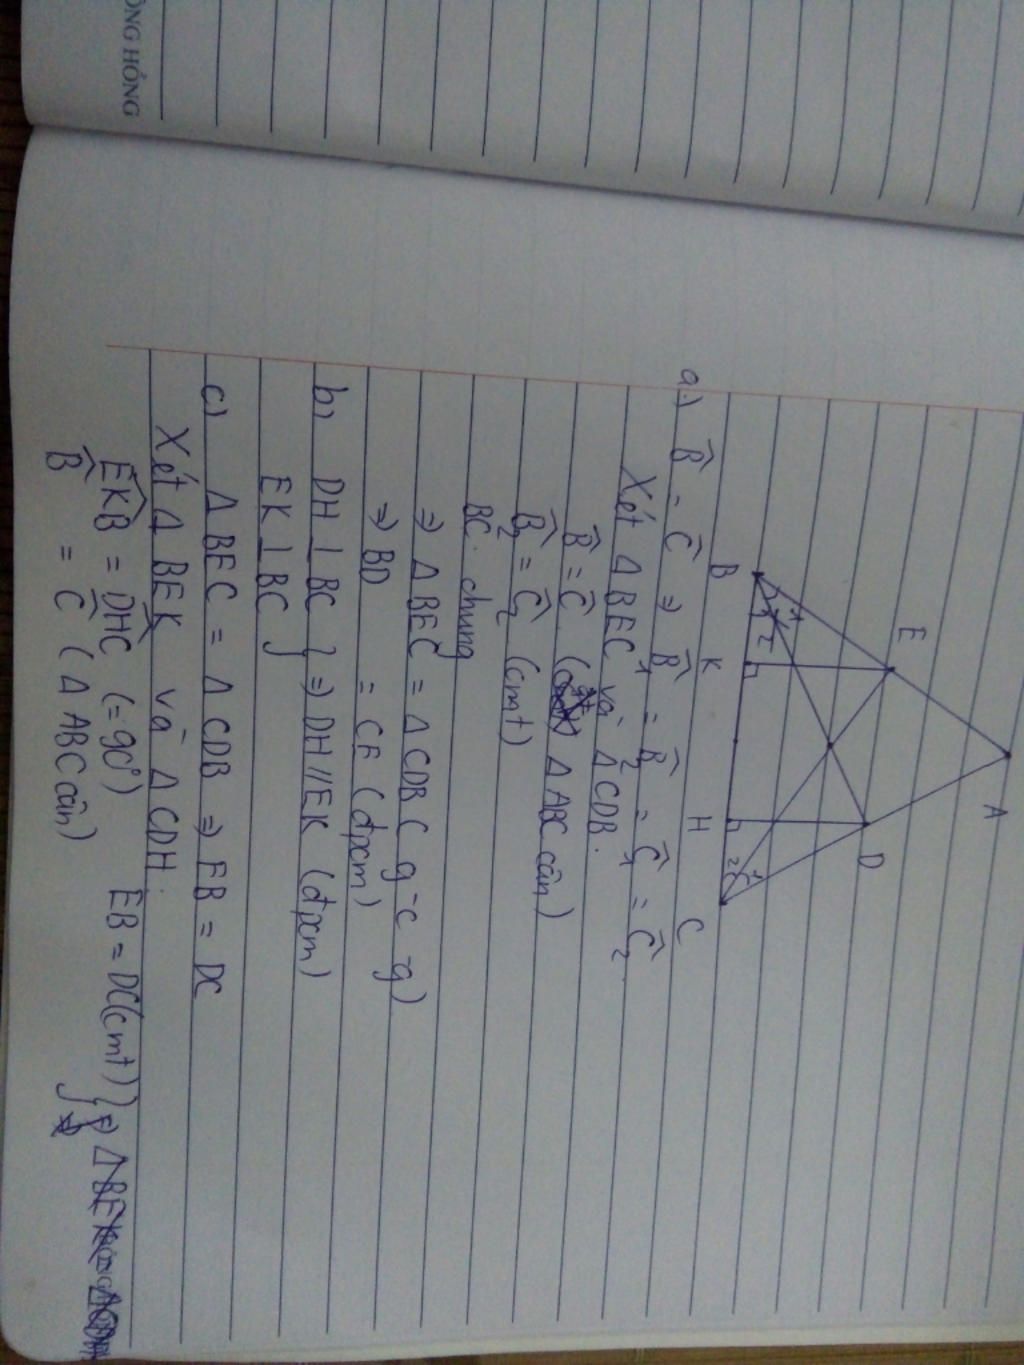 ỒNG HỒNG
A
E
D
B K H C
1 2
2 1
a.) B̂ = Ĉ ⇒ B̂₁ = B̂₂ = Ĉ₁ = Ĉ₂
Xét Δ BEC và Δ CDB.
B̂ = Ĉ ( gt Δ ABC cân)
B̂₂ = Ĉ₂ (cmt)
BC. chung
⇒ Δ BEC = Δ CDB ( g-c-g)
⇒ BD = CE (đpcm)
b) DH ⊥ BC } ⇒ DH // EK (đpcm)
EK ⊥ BC
c) Δ BEC = Δ CDB ⇒ EB = DC
Xét Δ BEK và Δ CDH.
EKB̂ = DHĈ (= 90°) EB = DC(cmt) } ⇒
B̂ = Ĉ ( Δ ABC cân)